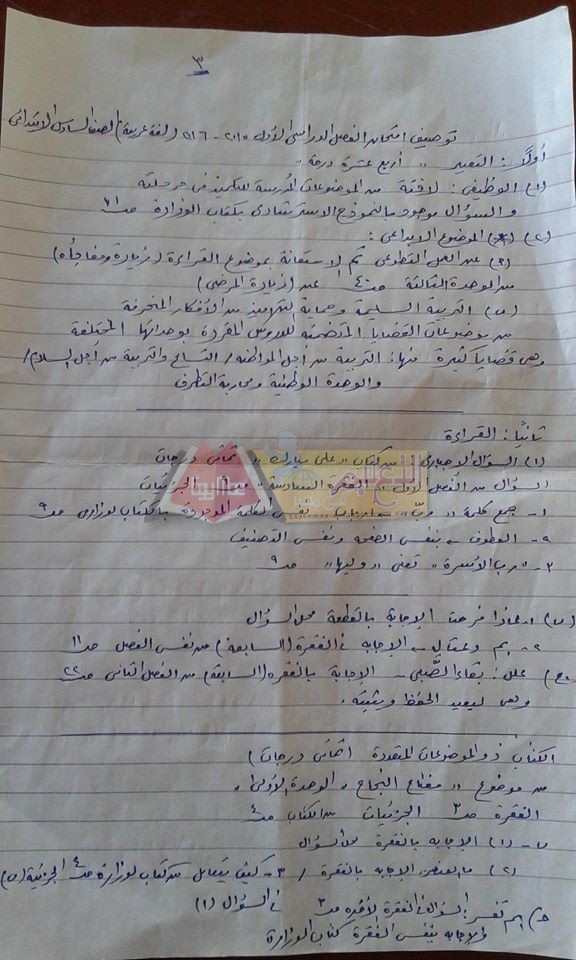 ٣
توصيف امتحان الفصل الدراسى الأول ٢٠١٥ - ٢٠١٦ (لغة عربية) الصف السادس الابتدائى
أولًا: التعبير " أربع عشرة درجة "
(١) الوظيفى: لافتة من الموضوعات المدرسية للتلميذ فى مرحلته
والسؤال موجود بالنموذج الاسترشادى بكتاب الوزارة صـ ٧١
(٢) الموضوع الإبداعى:
(٢) عن العمل التطوعى تم الاستعانة بموضوع القراءة (زيارة ومفاجأه)
من الوحدة الثالثة صـ ٤٠ عن (زيارة المرضى)
(ب) التربية السليمة وحماية من الأفكار المنحرفة
من موضوعات القضايا المتضمنة للدروس المقررة بوحداتها المختلفة
وهى قضايا كثيرة منها: التربية من أجل المواطنه / التسامح والتربية من أجل السلام /
والوحدة الوطنية ومحاربة التطرف
ثانيًا: القراءة
(١) السؤال الإجبارى من كتاب " على مبارك " ثمانى درجات
السؤال من الفصل الأول - الفقرة السادسة الجزئيات
١ - جمع كلمة نفس الكلمة الموجودة بالكتاب الوزارى صـ ٩
٢ - العطوف - بنفس الصفحه ونفس التصنيف
٣ - " رب الأسرة " تعنى " وليها " صـ ٩
(ب) لماذا فرحت الإجابة بالقطعة محل السؤال
٢ - بم الإجابه فى الفقرة (السابعة) من نفس الفصل صـ ١١
(جـ) علل: بقاء الصَّبى - الإجابة بالفقره (السابعة) من الفصل الثانى صـ ٢٢
وهى ليعيد الحفظ ويثبته.
الكتاب ذو الموضوعات المتعددة (ثمانى درجات)
من موضوع " مفتاح النجاح " الوحدة الأولى "
الفقرة صـ ٣ الجزئيات من الكتاب صـ ٤
ب - (١) الإجابه بالفقرة محل السؤال
(٢) الإجابه بالفقرة / ٣ - كيف يتعامل من كتاب الوزارة صـ ٤ الجزئية (ب)
فى السؤال (١)
جـ) بم تفسر: السؤال فى الفقرة الأخيره صـ ٣
والإجابه بنفس الفقرة كتاب الوزارة